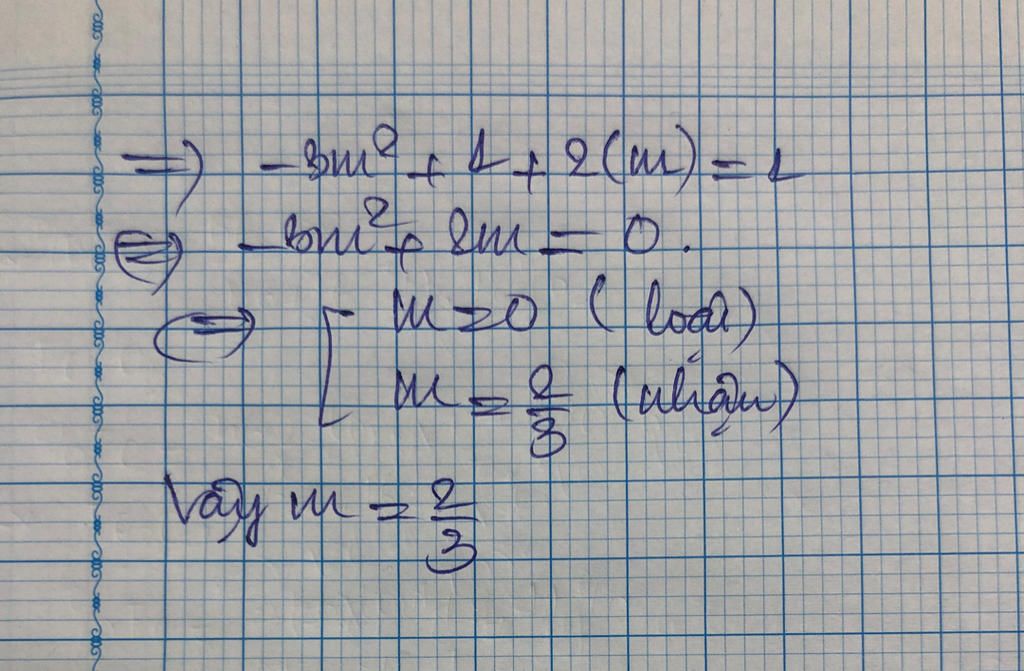 => -3m² + 1 + 2(m) = 1
<=> -3m² + 2m = 0.
<=> [ m = 0 (loại)
m = 2/3 (nhận)
Vậy m = 2/3